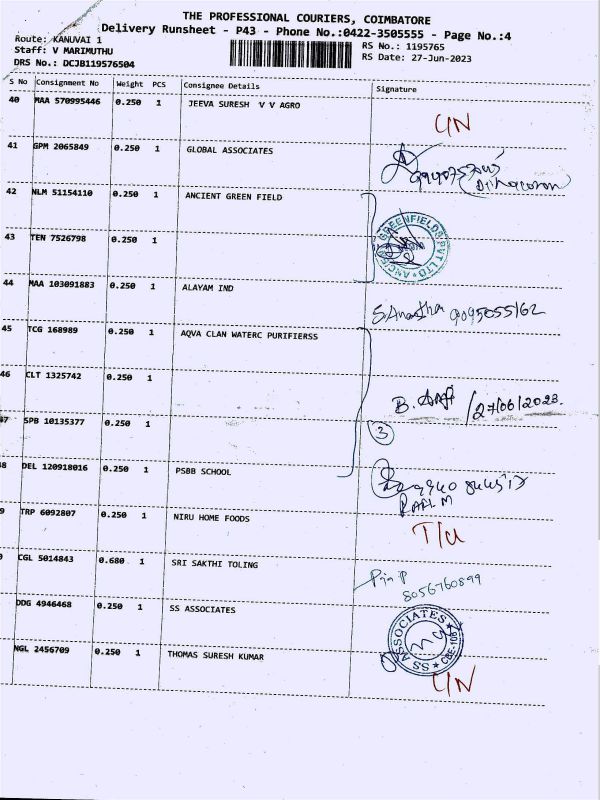 THE PROFESSIONAL COURIERS, COIMBATORE
Delivery Runsheet - P43 - Phone No.:0422-3505555 - Page No.:4
Route: KANUVAI 1
RS No.: 1195765
Staff: V MARIMUTHU
RS Date: 27-Jun-2023
DRS No.: DCJB119576504
S No Consignment No Weight PCS Consignee Details Signature
40 MAA 570995446 0.250 1 JEEVA SURESH V V AGRO
41 GPM 2065849 0.250 1 GLOBAL ASSOCIATES
42 NLM 51154110 0.250 1 ANCIENT GREEN FIELD
43 TEN 7526798 0.250 1
GREENFIELDS PVT LTD
44 MAA 103091883 0.250 1 ALAYAM IND
9095055162
45 TCG 168989 0.250 1 AQVA CLAN WATERC PURIFIERSS
46 CLT 1325742 0.250 1
B. /27/06/2023.
47 SPB 10135377 0.250 1
3
8 DEL 120918016 0.250 1 PSBB SCHOOL
9 TRP 6092807 0.250 1 NIRU HOME FOODS
CGL 5014843 0.680 1 SRI SAKTHI TOLING
8056760899
DDG 4946468 0.250 1 SS ASSOCIATES
SS ASSOCIATES
NGL 2456709 0.250 1 THOMAS SURESH KUMAR